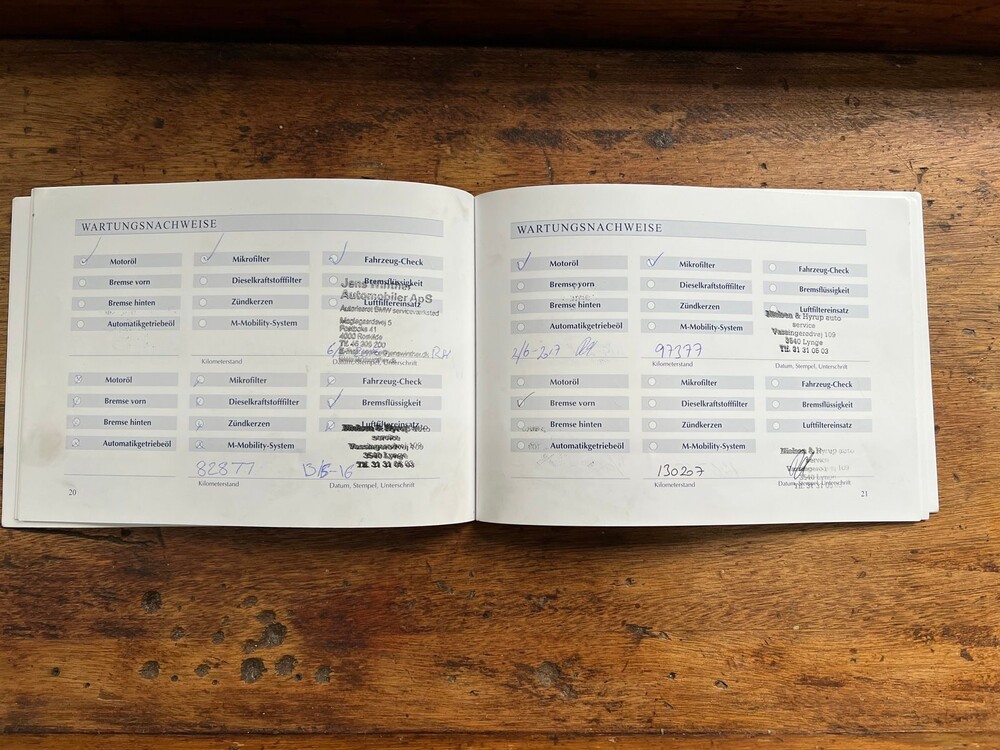 WARTUNGSNACHWEISE
Motoröl Mikrofilter Fahrzeug-Check
Bremse vorn Dieselkraftstofffilter Bremsflüssigkeit
Bremse hinten Zündkerzen Luftfiltereinsatz
Automatikgetriebeöl M-Mobility-System
Jens Winther
Automobiler ApS
Autoriseret BMW serviceværksted
Postboks 41
4000 Roskilde
Kilometerstand Datum, Stempel, Unterschrift
Motoröl Mikrofilter Fahrzeug-Check
Bremse vorn Dieselkraftstofffilter Bremsflüssigkeit
Bremse hinten Zündkerzen Luftfiltereinsatz
Automatikgetriebeöl M-Mobility-System
Nielsen & Hyrup auto
service
Vassingerødvej 109
3540 Lynge
Tlf. 31 31 06 03
82877
Kilometerstand Datum, Stempel, Unterschrift
20
WARTUNGSNACHWEISE
Motoröl Mikrofilter Fahrzeug-Check
Bremse vorn Dieselkraftstofffilter Bremsflüssigkeit
Bremse hinten Zündkerzen Luftfiltereinsatz
Automatikgetriebeöl M-Mobility-System
Nielsen & Hyrup auto
service
Vassingerødvej 109
3540 Lynge
Tlf. 31 31 06 03
2/6-2017 97377
Kilometerstand Datum, Stempel, Unterschrift
Motoröl Mikrofilter Fahrzeug-Check
Bremse vorn Dieselkraftstofffilter Bremsflüssigkeit
Bremse hinten Zündkerzen Luftfiltereinsatz
Automatikgetriebeöl M-Mobility-System
Nielsen & Hyrup auto
service
Vassingerødvej 109
3540 Lynge
Tlf. 31 31 06 03
130207
Kilometerstand Datum, Stempel, Unterschrift
21